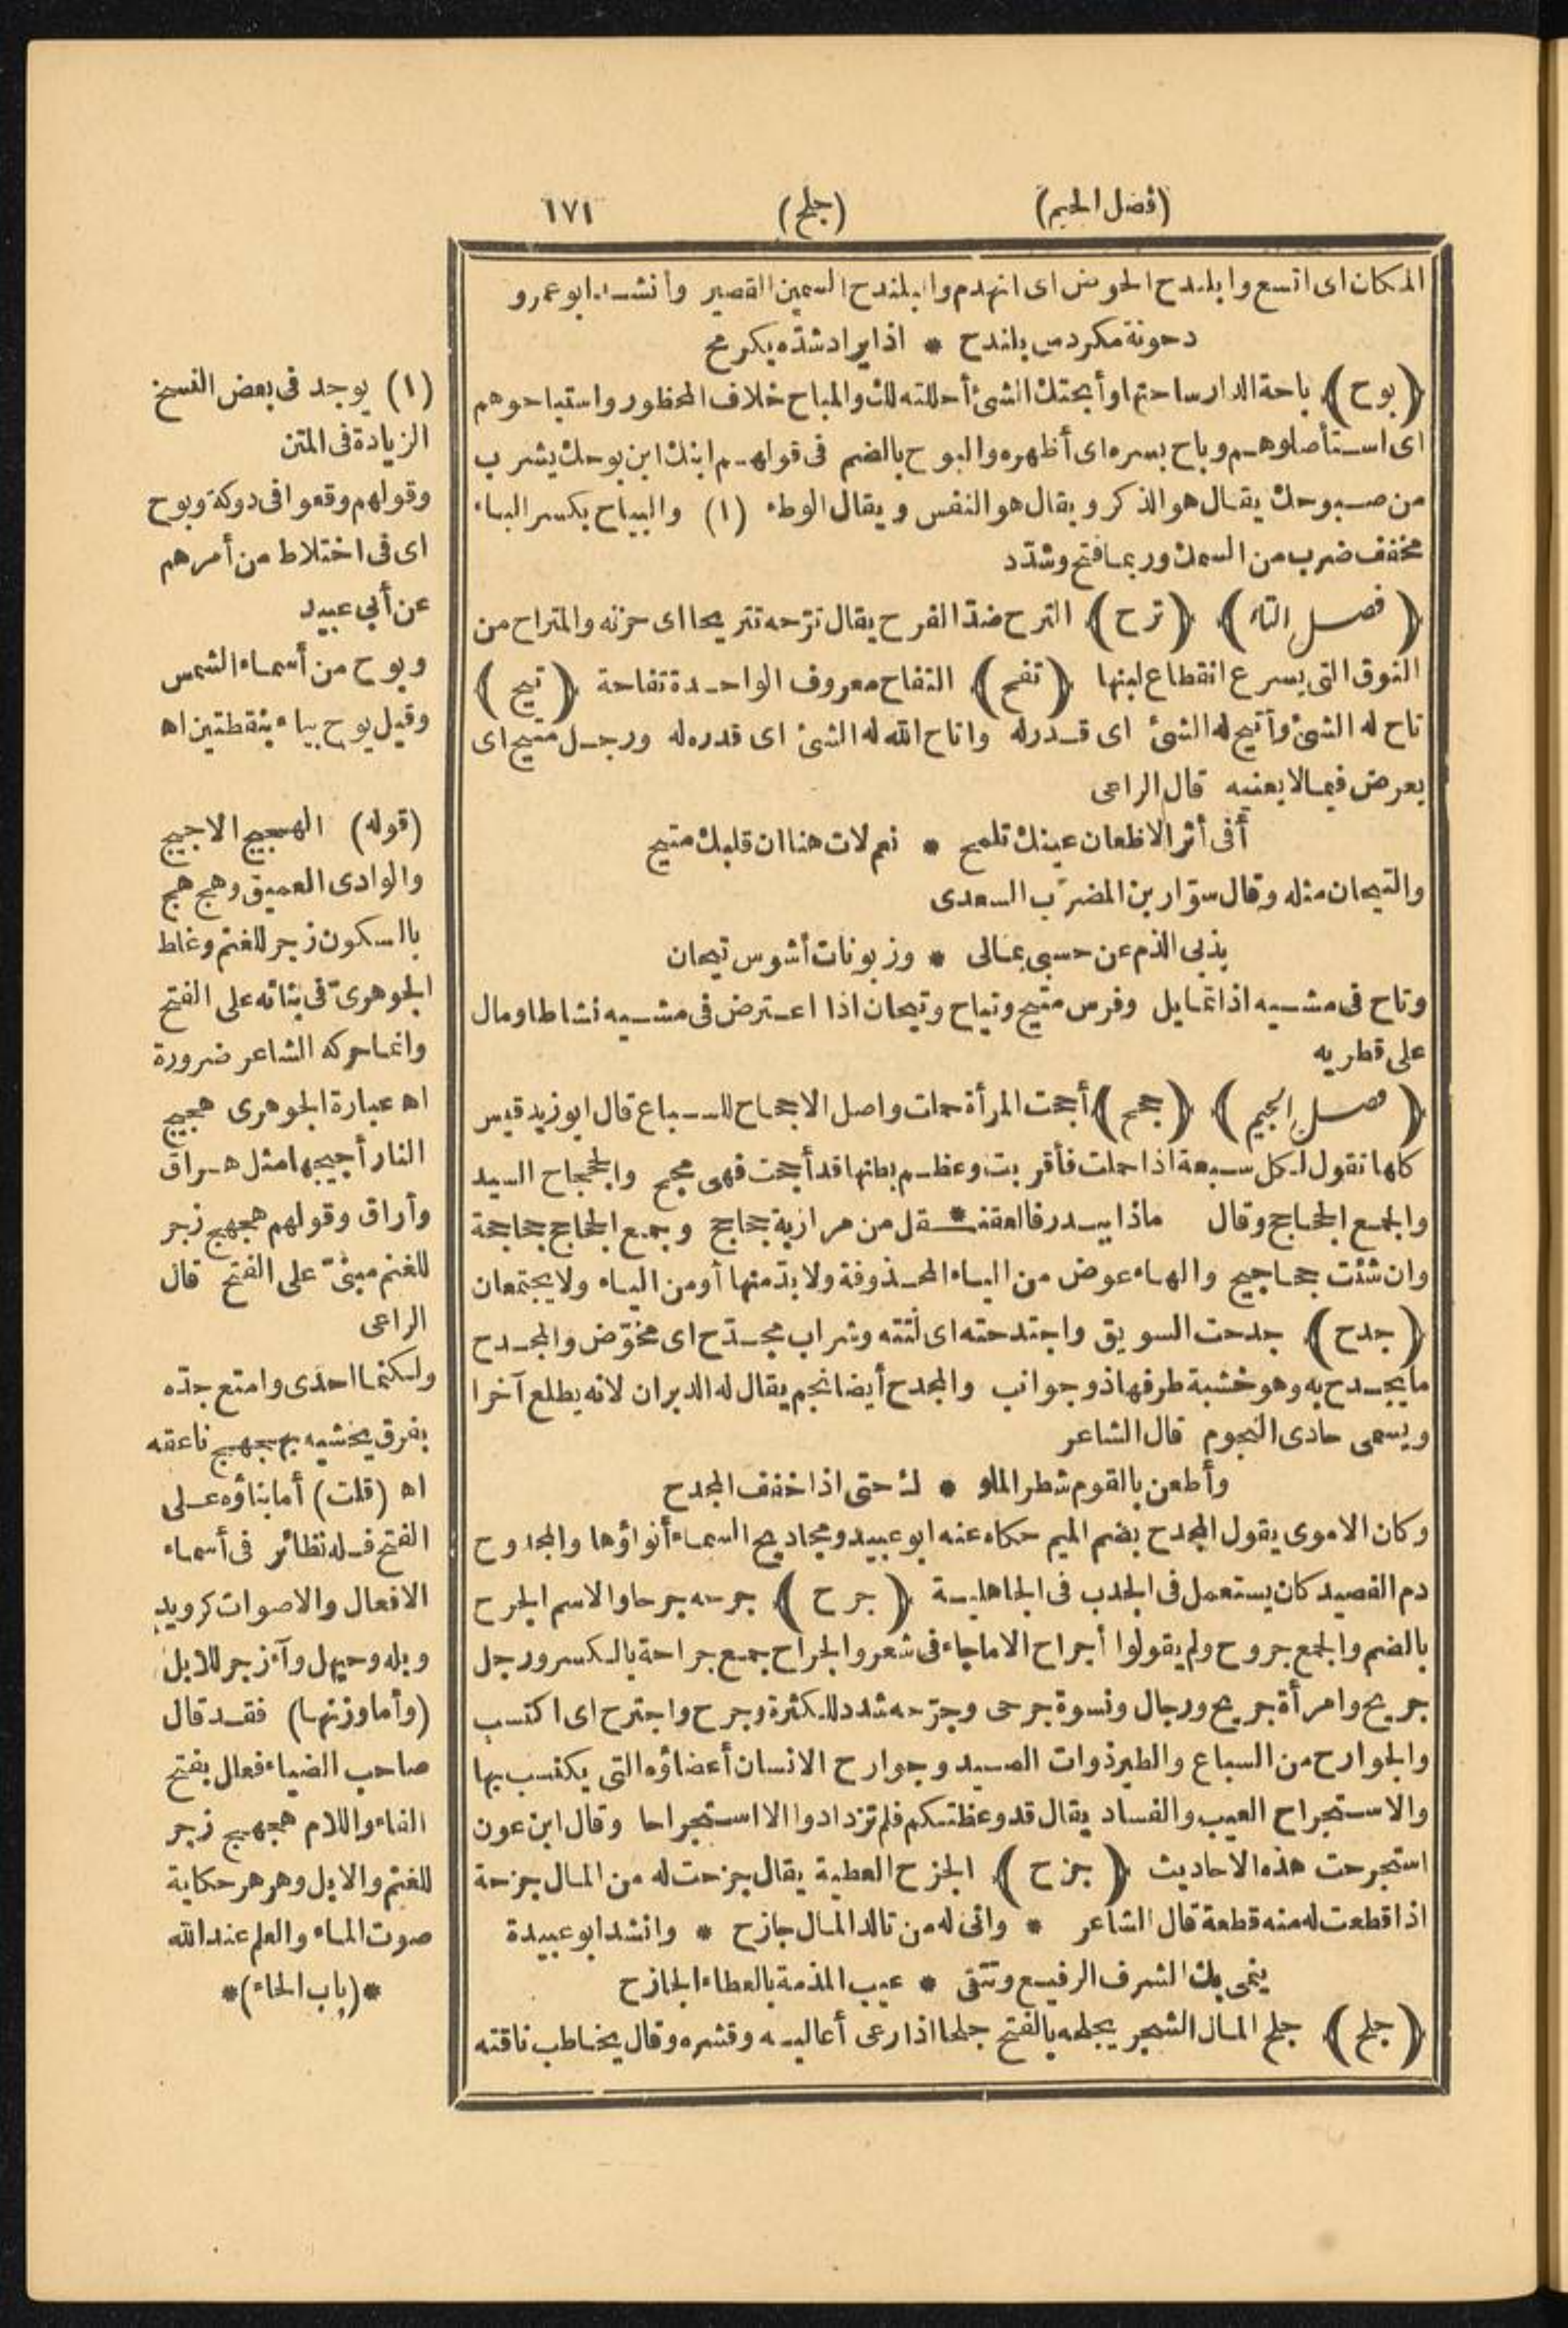 (فصل الجيم)
(جلح)
١٧١
المكان اى اتسع وابلندح الحوض اى انهدم والبلندح السمين القصير وأنشد ابو عمرو
دحونة مكردس بلندح * اذا يراد شدّه يكرمح
﴿بوح﴾ باحة الدار ساحتها وأبحتك الشئ أحللته لك والمباح خلاف المحظور واستباحوهم
اى استأصلوهم وباح بسره اى أظهره والبوح بالضم فى قولهم ابنك ابن بوحك يشرب
من صبوحك يقال هو الذكر ويقال هو النفس ويقال الوطء (١) والبياح بكسر الباء
مخفف ضرب من السمك وربما فتح وشدّد
﴿فصل التاء﴾ ﴿ترح﴾ الترح ضدّ الفرح يقال ترّحه تتريحا اى حزنه والمتراح من
النوق التى يسرع انقطاع لبنها ﴿تفح﴾ التفاح معروف الواحدة تفاحة ﴿تيح﴾
تاح له الشئ وأتيح له الشئ اى قدر له واتاح الله له الشئ اى قدره له ورجل متيح اى
يعرض فيما لا يعنيه قال الراعى
أفى أثر الاظعان عينك تلمح * نعم لات هنا ان قلبك متيح
والتيحان مثله وقال سوّار بن المضرّب السعدى
بذبى الذم عن حسبى بمالى * وزبونات أشوس تيحان
وتاح فى مشيه اذا تمايل وفرس متيح وتياح وتيحان اذا اعترض فى مشيه نشاطا ومال
على قطريه
﴿فصل الجيم﴾ ﴿جحح﴾ أجحت المرأة حملت واصل الاجحاح للسباع قال ابو زيد قيس
كلها تقول لكل سبعة اذا حملت فأقربت وعظم بطنها قد أجحت فهى مجح والجحجاح السيد
والجمع الجحاجح وقال ماذا ببدر فالعقنـ * ـقل من مرازبة جحاجح وجمع الجحاجح جحاجحة
وان شئت جحاجيح والهاء عوض من الياء المحذوفة ولا بدّ منها أو من الياء ولا يجتمعان
﴿جدح﴾ جدحت السويق واجتدحته اى لتته وشراب مجدّح اى مخوّض والمجدح
ما يجدح به وهو خشبة طرفها ذو جوانب والمجدح أيضا نجم يقال له الدبران لانه يطلع آخرا
ويسمى حادى النجوم قال الشاعر
وأطعن بالقوم شطر الملو * ك حتى اذا خفف المجدح
وكان الاموى يقول المجدح بضم الميم حكاه عنه ابو عبيد ومجاديح السماء أنواؤها والمجدوح
دم الفصيد كان يستعمل فى الجدب فى الجاهلية ﴿جرح﴾ جرحه جرحا والاسم الجرح
بالضم والجمع جروح ولم يقولوا أجراح الا ما جاء فى شعر والجراح جمع جراحة بالكسر ورجل
جريح وامرأة جريح ورجال ونسوة جرحى وجرّحه شدد للكثرة وجرح واجترح اى اكتسب
والجوارح من السباع والطير ذوات الصيد وجوارح الانسان أعضاؤه التى يكتسب بها
والاستجراح العيب والفساد يقال قد وعظتكم فلم تزدادوا الا استجراحا وقال ابن عون
استجرحت هذه الاحاديث ﴿جزح﴾ الجزح العطية يقال جزحت له من المال جزحة
اذا قطعت له منه قطعة قال الشاعر * وانى له من تالد المال جازح * وانشد ابو عبيدة
ينمى بك الشرف الرفيع وتتقى * عيب المذمة بالعطاء الجازح
﴿جلح﴾ جلح المال الشجر يجلحه بالفتح جلحا اذا رعى أعاليه وقشره وقال يخاطب ناقته
(١) يوجد فى بعض النسخ
الزيادة فى المتن
وقولهم وقعوا فى دوكة وبوح
اى فى اختلاط من أمرهم
عن أبى عبيد
وبوح من أسماء الشمس
وقيل يوح بياء بنقطتين اه
(قوله) الهجيج الاجيج
والوادى العميق وهج هج
بالسكون زجر للغنم وغلط
الجوهرىّ فى بنائه على الفتح
وانما حركه الشاعر ضرورة
اه عبارة الجوهرى هجيج
النار أجيجها مثل هراق
وأراق وقولهم هجهج زجر
للغنم مبنىّ على الفتح قال
الراعى
ولكنما احدى وامتع جدّه
بفرق يخشيه بهجهج ناعقه
اه (قلت) أما بناؤه على
الفتح فله نظائر فى أسماء
الافعال والاصوات كرويد
وبله وحيهل وآء زجر للابل
(وأما وزنها) فقد قال
صاحب الضياء فعال بفتح
الفاء واللام هجهج زجر
للغنم والابل وهرهر حكاية
صوت الماء والعلم عند الله
*(باب الحاء)*